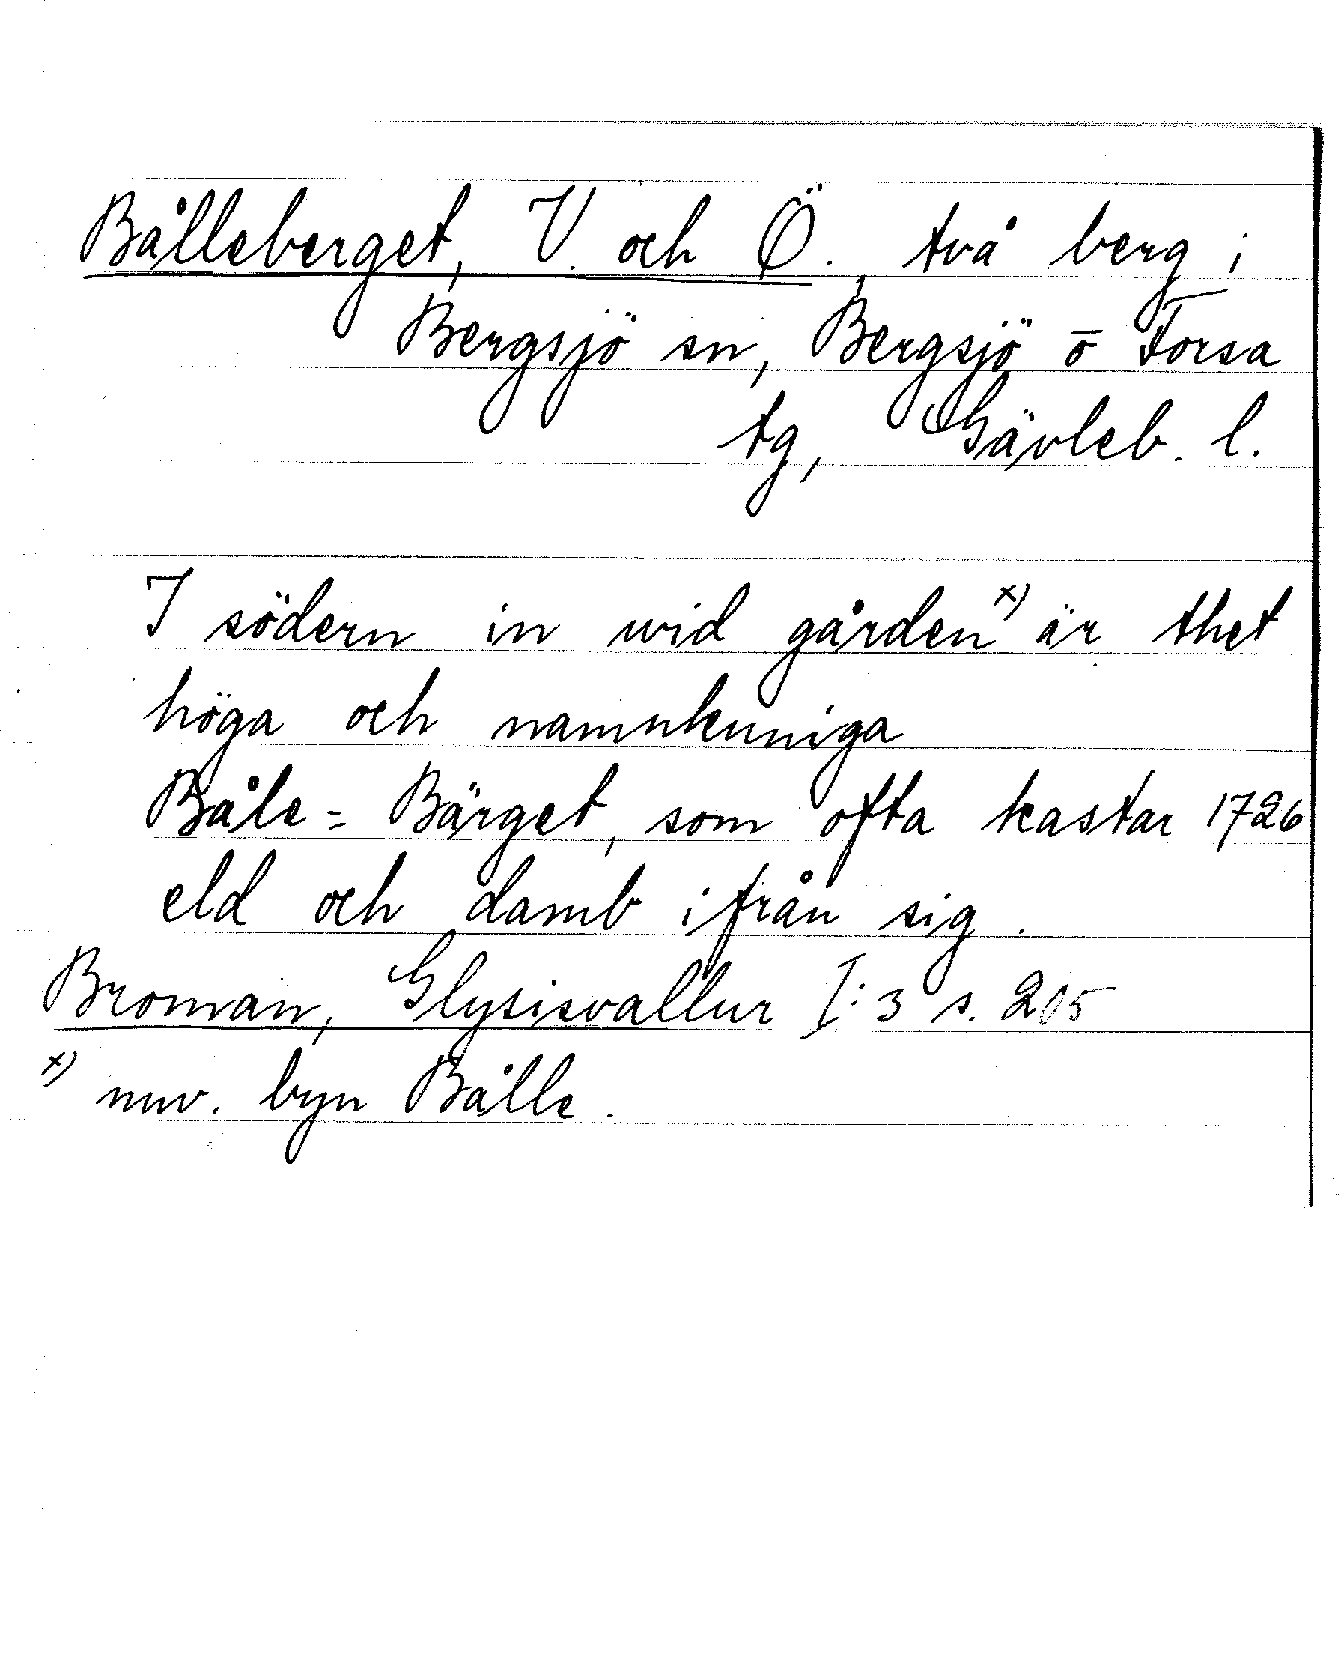 Bålleberget, V. och Ö., två berg i
Bergsjö sn, Bergsjö o Forsa
tg, Gävleb. l.
I södern in wid gården x) är thet
höga och namnkuniga
Båle= Bärget, som ofta kastar 1726
eld och damb ifrån sig.
Broman, Glysisvallur I:3 s. 205
x) nuv. byn Bålle.